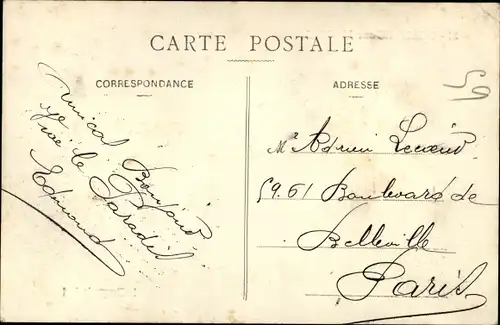 CARTE POSTALE
CORRESPONDANCE
Amical Bonjour
de
Rue de Paradis
Edmond
ADRESSE
59
Mr Adrien Lecoeur
59.61 Boulevard de
Belleville
Paris